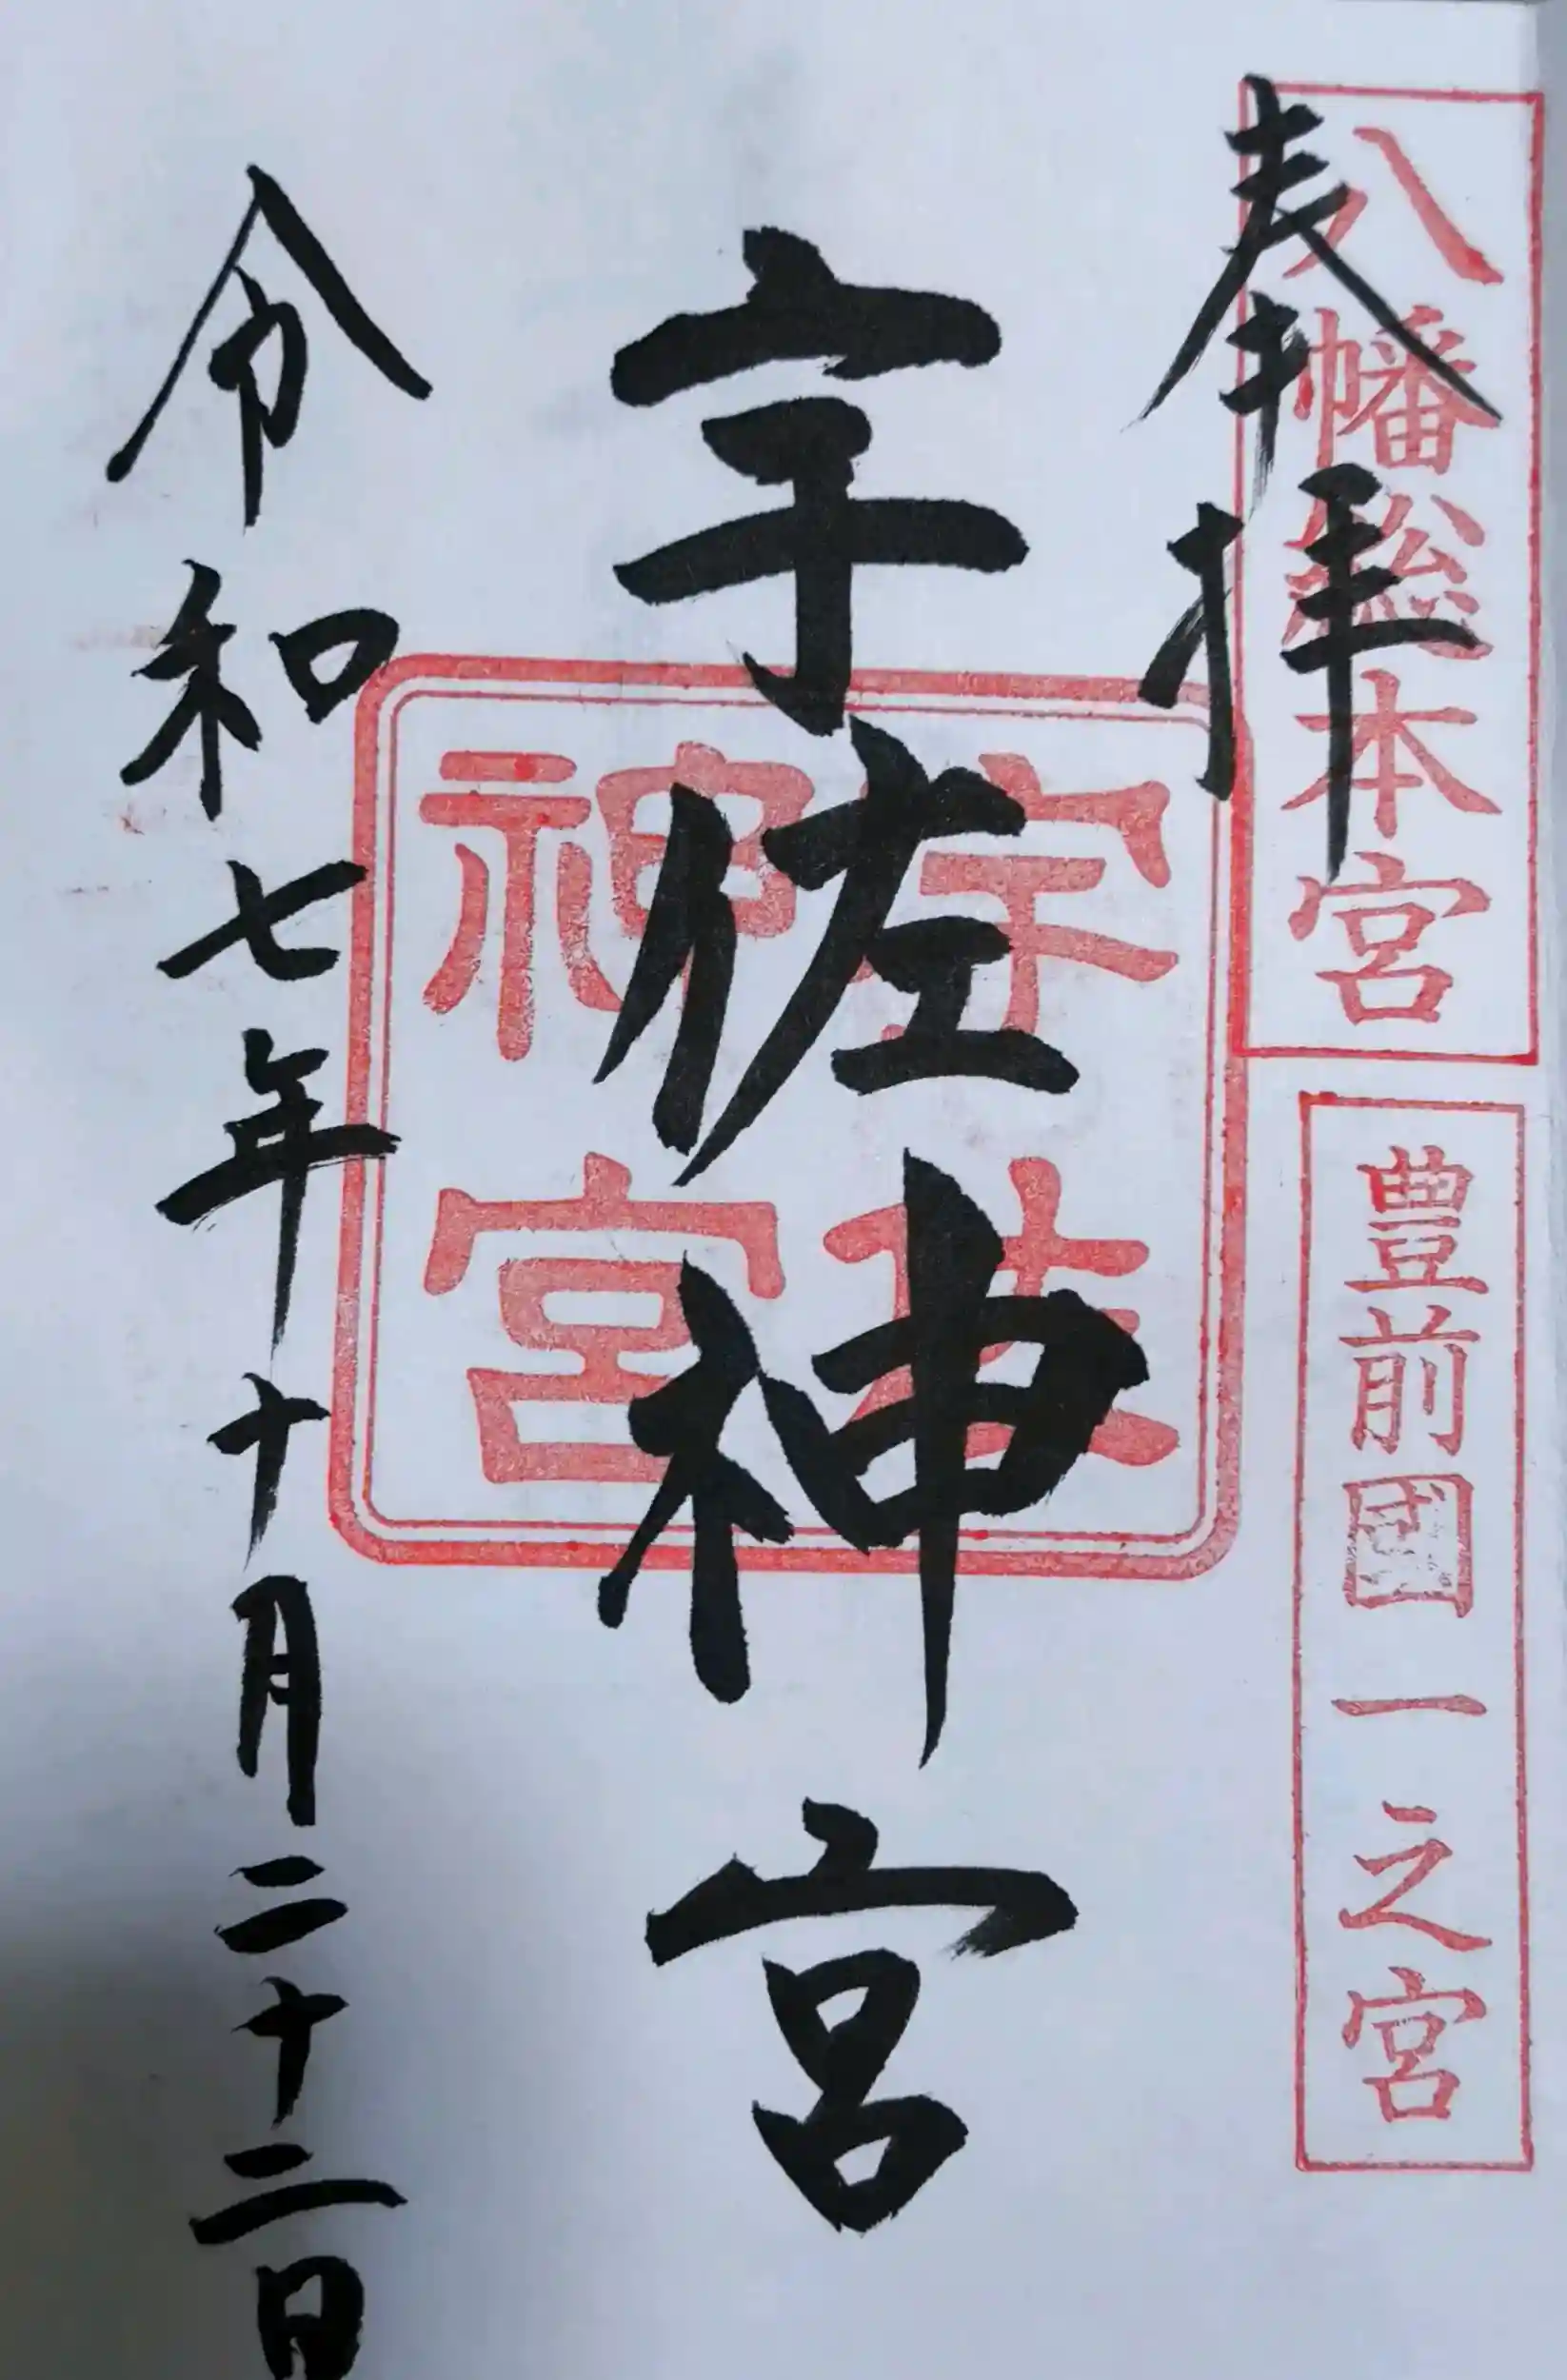 奉拝
八幡総本宮
豊前國一之宮
宇佐神宮
宇佐
神宮
令和七年十月二十二日